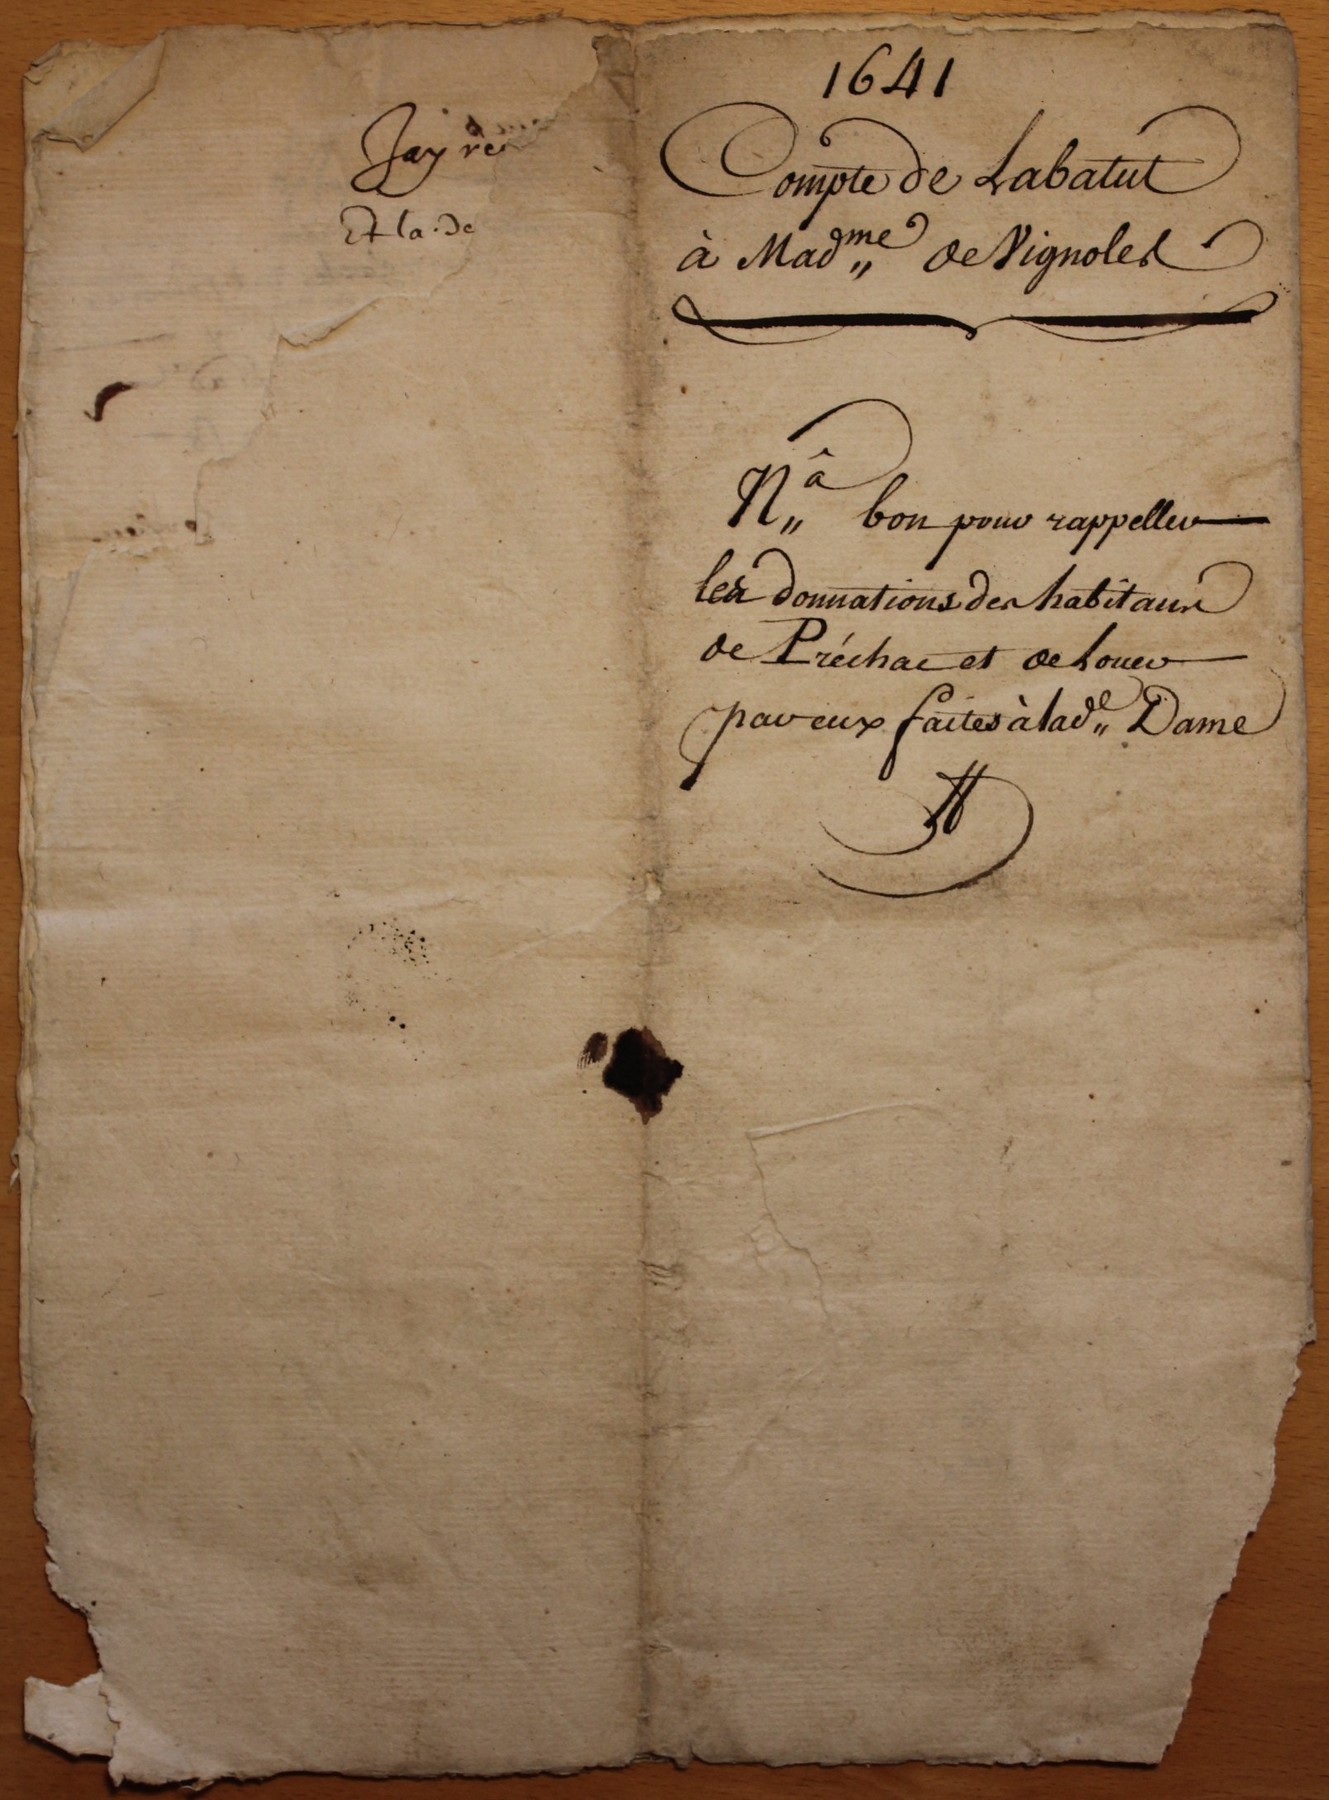 1641
Compte de Labatut
à Mad.me de Vignoles
N.a bon pour rappeller
les donnations des habitans
de Préchac et de Louer
par eux faites à lad.e Dame
Jay
Et la de